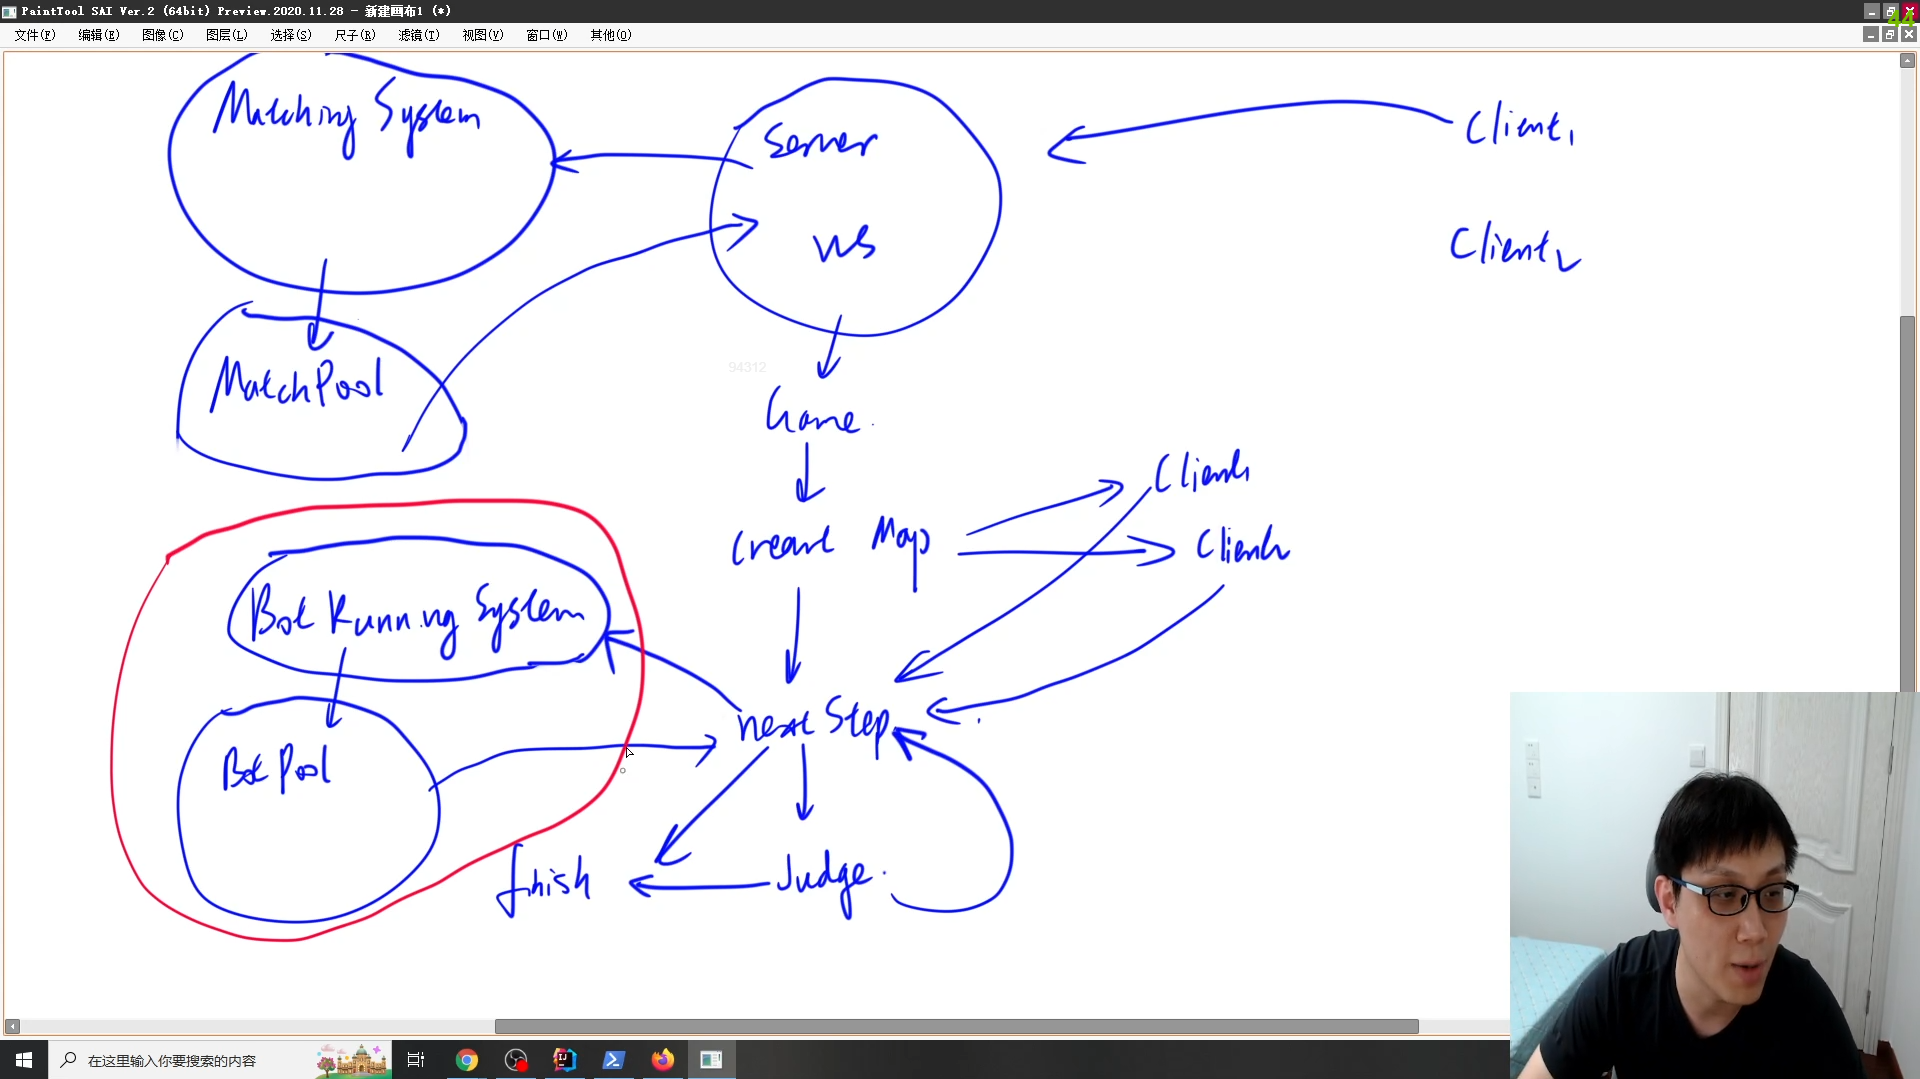 PaintTool SAI Ver.2 (64bit) Preview.2020.11.28 - 新建画布1 (*)
44
文件(F) 编辑(E) 图像(C) 图层(L) 选择(S) 尺子(R) 滤镜(T) 视图(V) 窗口(W) 其他(O)
Matching System
Server
WS
Client1
Client2
MatchPool
94312
Game
Creat Map
Client1
Client2
Bot Running System
next Step
Bot Pool
finish
Judge
在这里输入你要搜索的内容